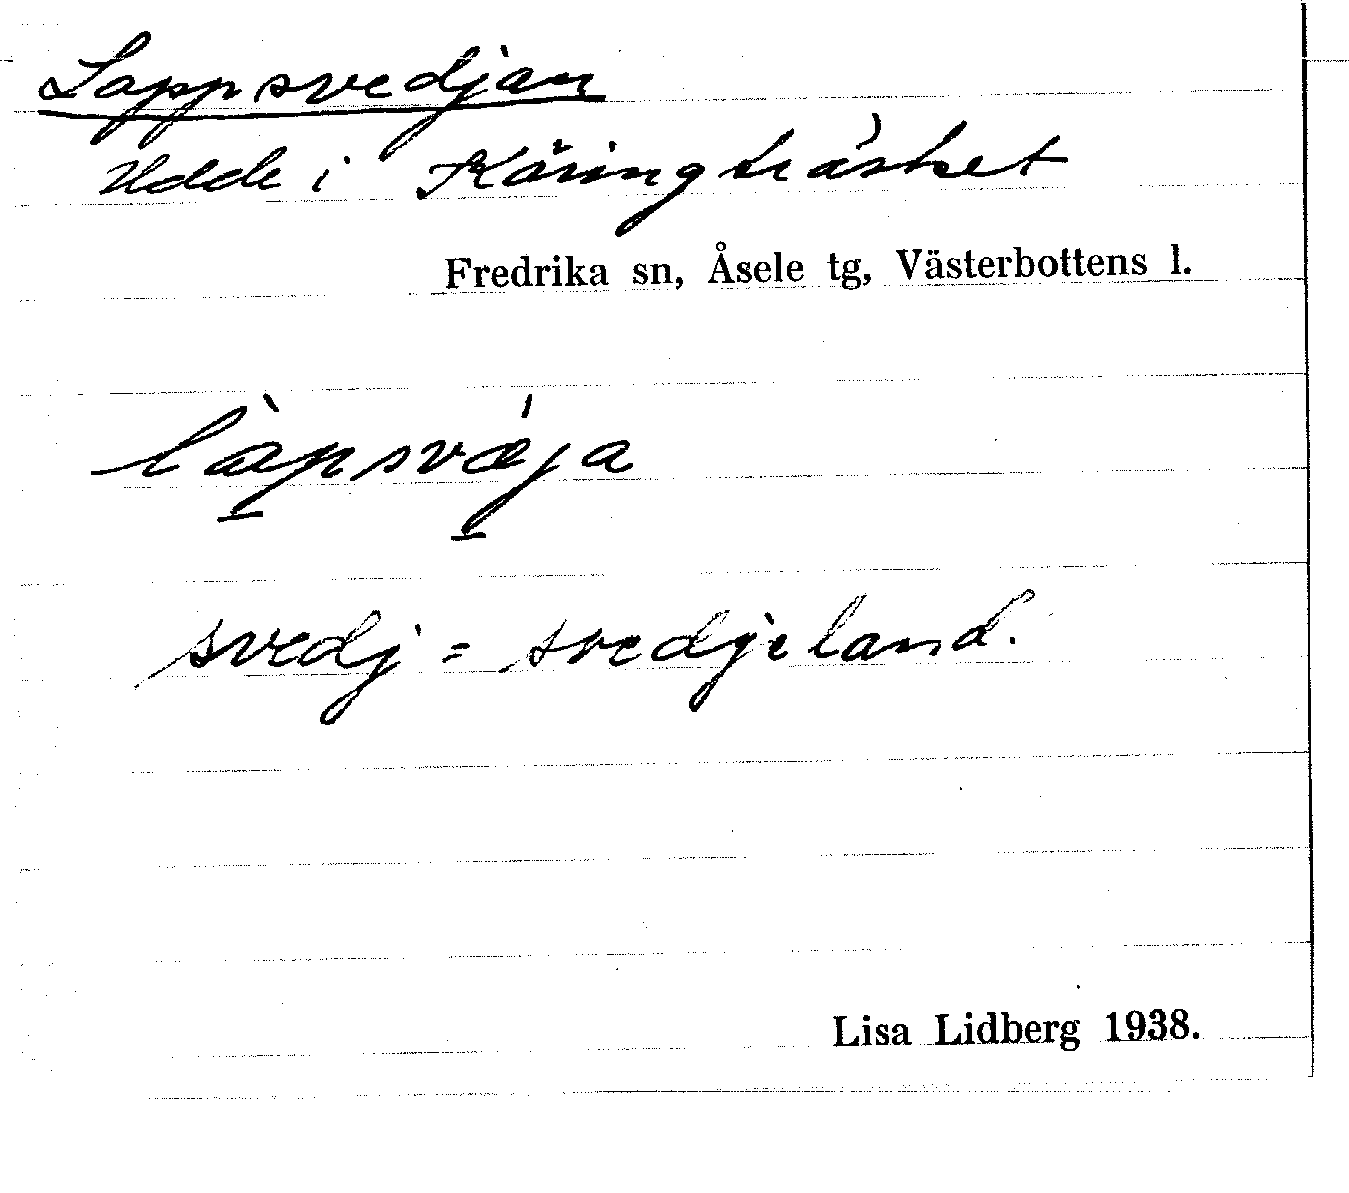 Lappsvedjan
Udde i Käringträsket
Fredrika sn, Åsele tg, Västerbottens l.
làpsvǽja
svedj = svedjeland.
Lisa Lidberg 1938.